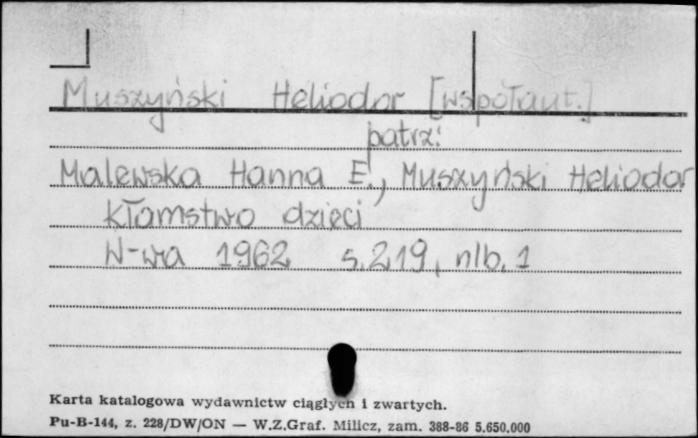 Muszyński Heliodor [współaut.]
patrz:
Malewska Hanna E., Muszyński Heliodor
Kłamstwo dzieci
W-wa 1962 s.219, nlb. 1
Karta katalogowa wydawnictw ciągłych i zwartych.
Pu-B-144, z. 228/DW/ON — W.Z.Graf. Milicz, zam. 388-86 5.650.000